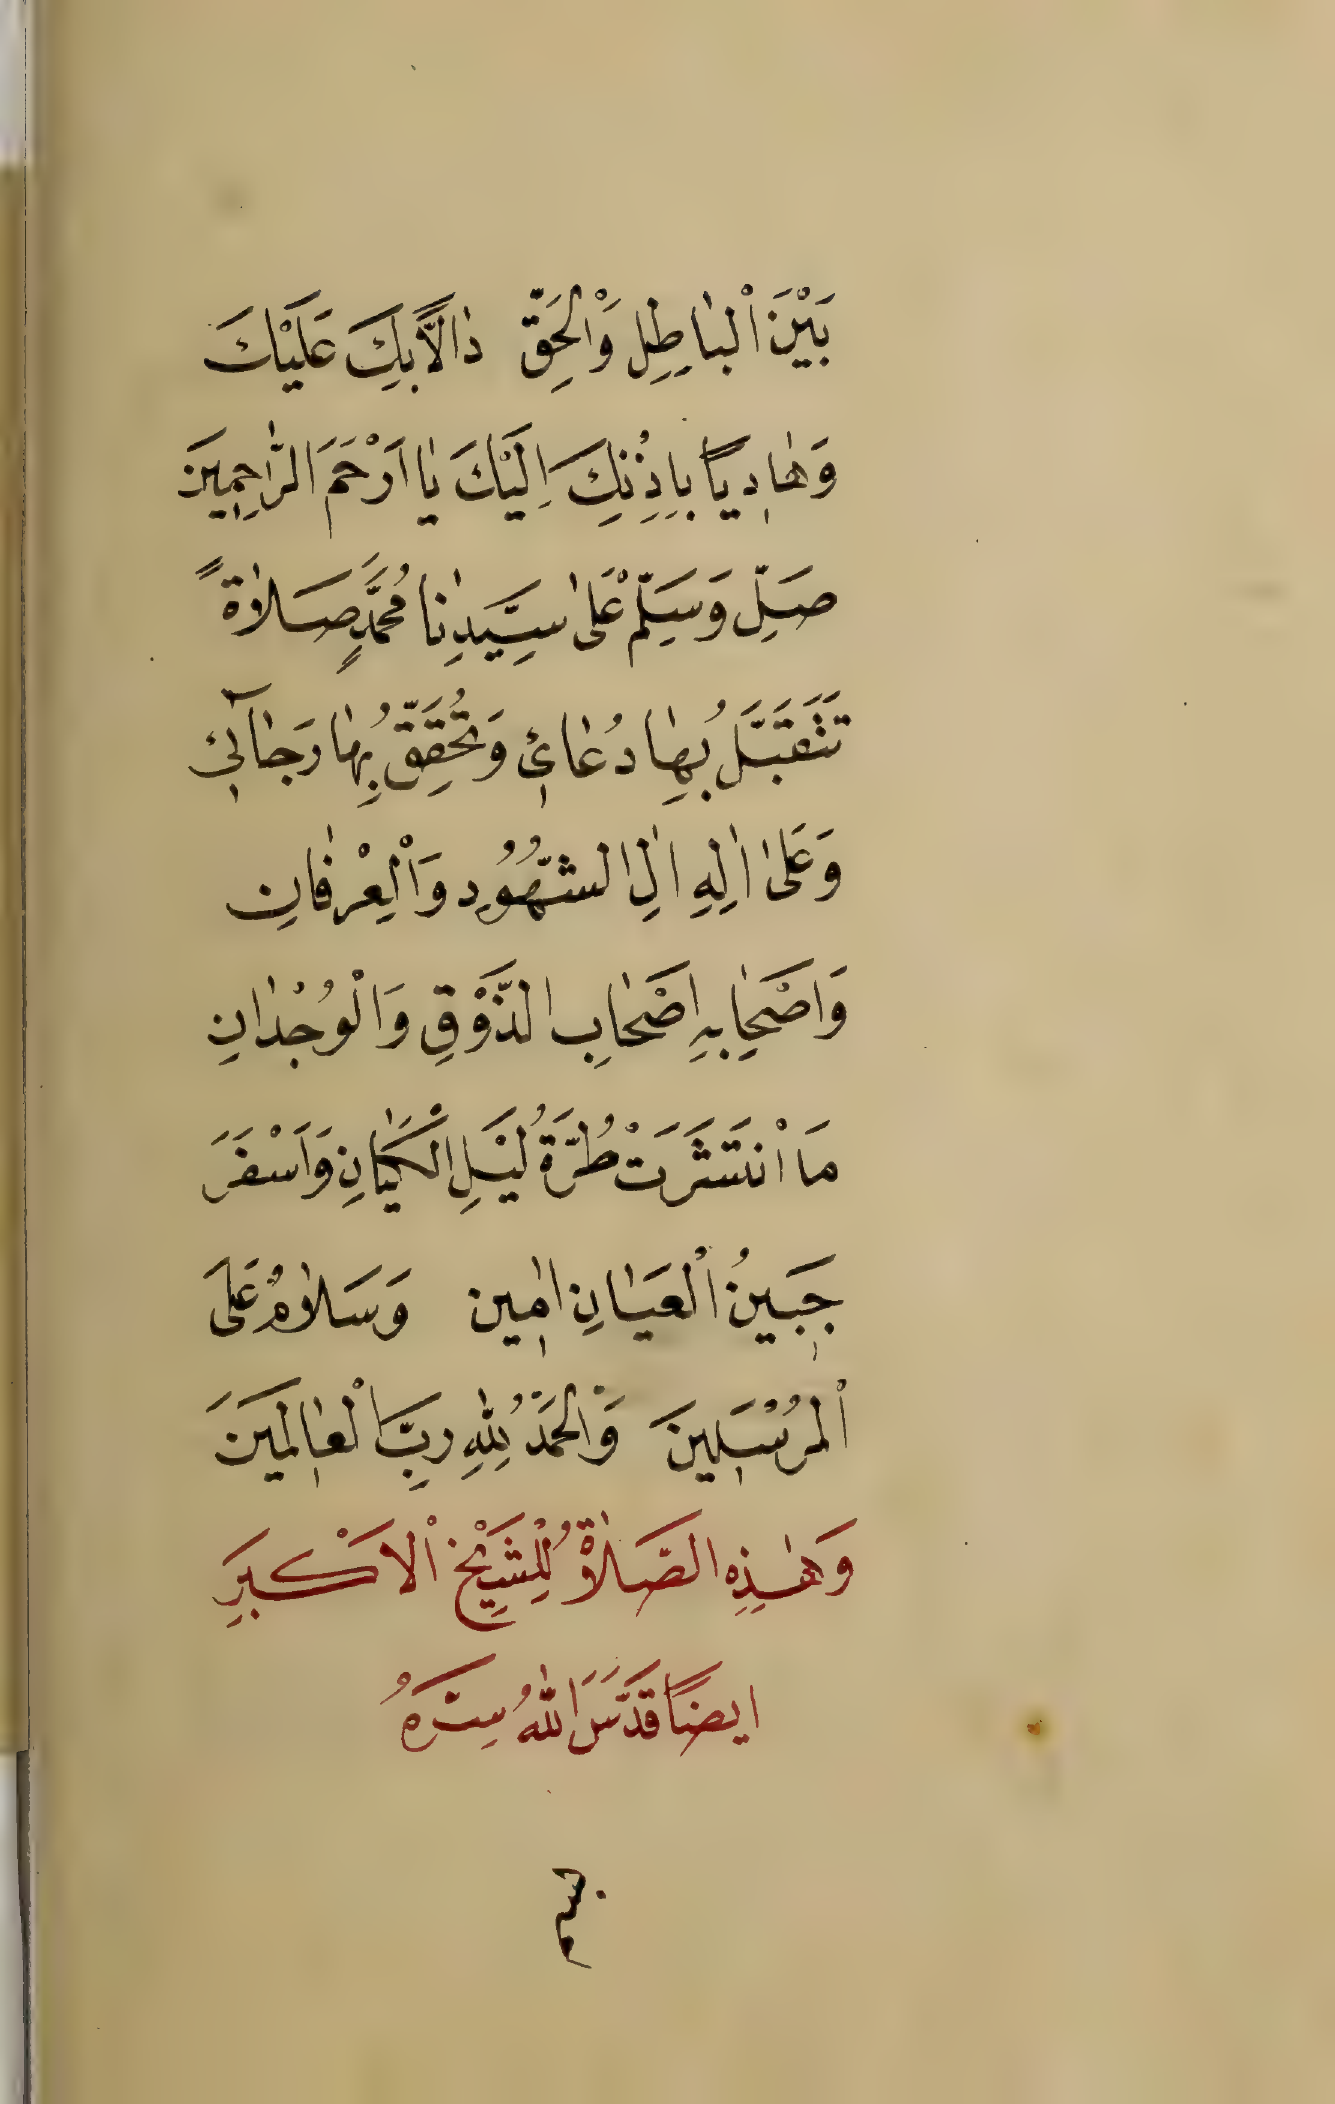 بَيْنَ الْبَاطِلِ وَالْحَقِّ دَالاًّ بِكَ عَلَيْكَ
وَهَادِيًا بِاِذْنِكَ اِلَيْكَ يَا اَرْحَمَ الرَّاحِمِينَ
صَلِّ وَسَلِّمْ عَلَى سَيِّدِنَا مُحَمَّدٍ صَلَاةً
تَتَقَبَّلُ بِهَا دُعَائِي وَتُحَقِّقُ بِهَا رَجَائِي
وَعَلَى اٰلِهِ اٰلِ الشُّهُودِ وَالْعِرْفَانِ
وَاَصْحَابِهِ اَصْحَابِ الذَّوْقِ وَالْوُجْدَانِ
مَا انْتَشَرَتْ طُرَّةُ لَيْلِ الْكِيَانِ وَاَسْفَرَ
جَبِينُ الْعَيَانِ اٰمِين وَسَلَامٌ عَلَى
الْمُرْسَلِينَ وَالْحَمْدُ لِلّٰهِ رَبِّ الْعَالَمِينَ
وَهٰذِهِ الصَّلَاةُ لِلشَّيْخِ الْاَكْبَرِ
ايضًا قَدَّسَ اللّٰهُ سِرَّهُ
بسم